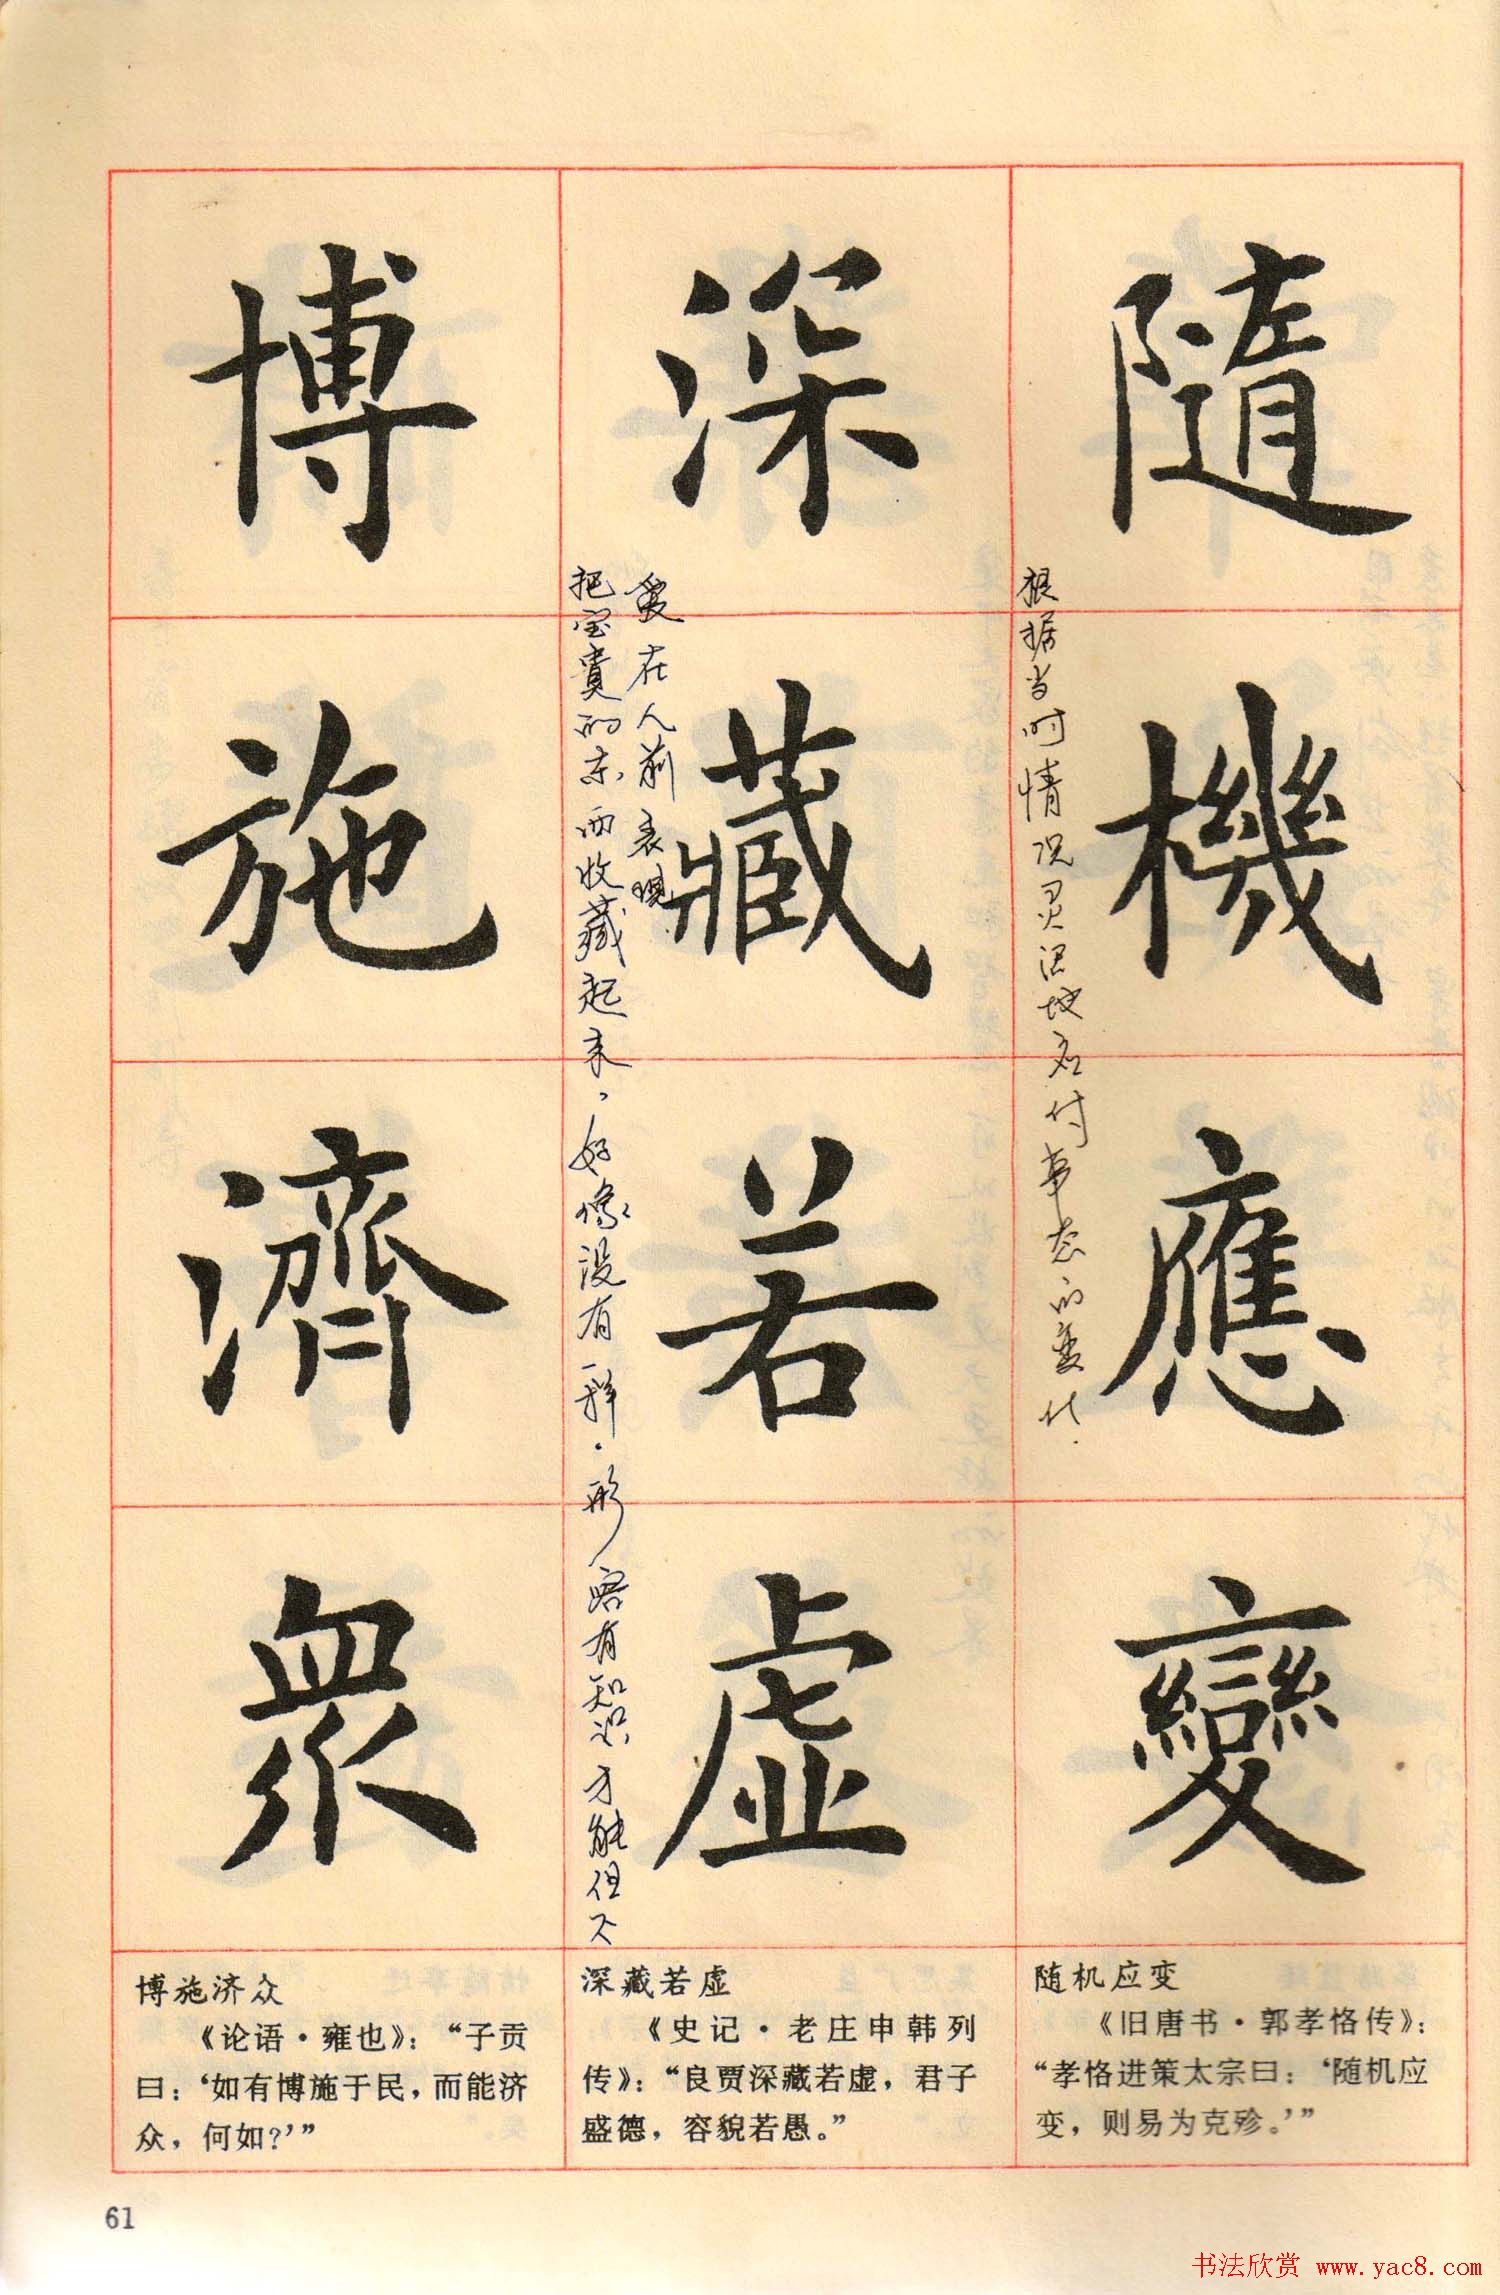 隨機應變
根据当时情况灵活地应付事态的变化.
深藏若虛
把宝贵的东西收藏起来，好像没有一样.形容有知识才能但不
爱在人前表现
博施濟衆
博施济众
《论语·雍也》：“子贡
曰：‘如有博施于民，而能济
众，何如？’”
深藏若虚
《史记·老庄申韩列
传》：“良贾深藏若虚，君子
盛德，容貌若愚。”
随机应变
《旧唐书·郭孝恪传》：
“孝恪进策太宗曰：‘随机应
变，则易为克殄。’”
61
书法欣赏 www.yac8.com